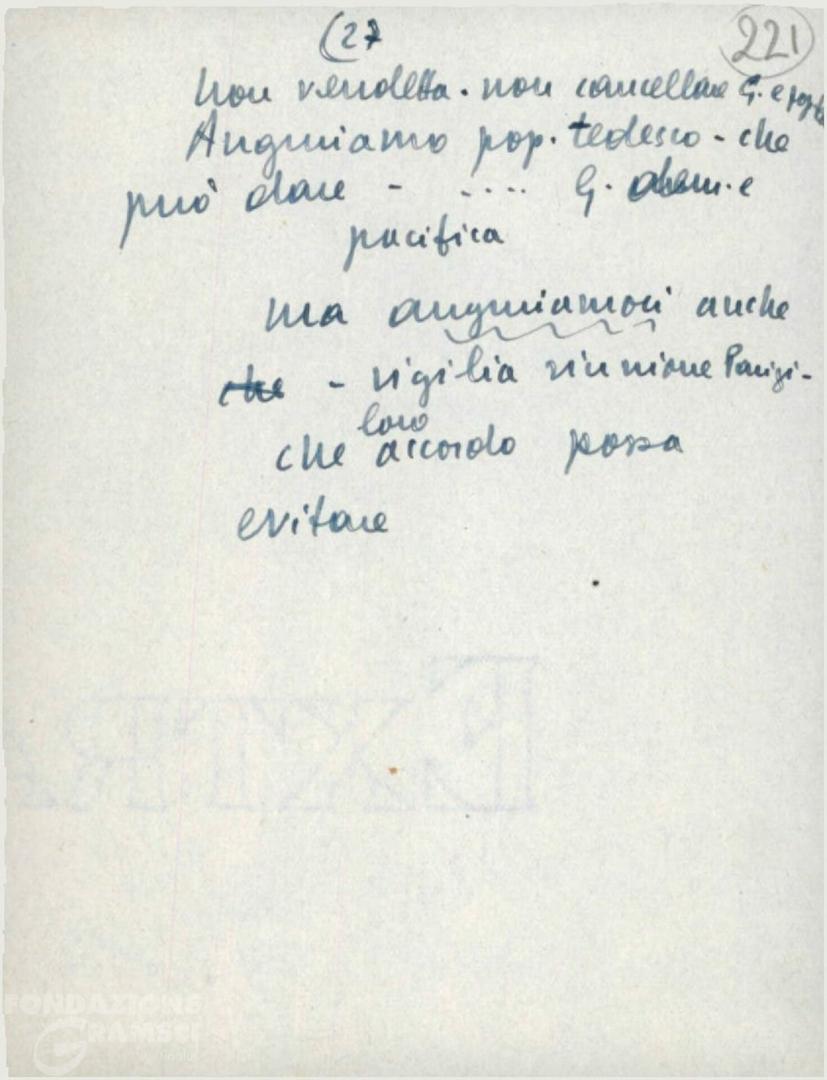 (27
221
non vendetta. non cancellare G. e pop.
Auguriamo pop. tedesco - che
può dare - .... G. dem. e
pacifica
ma auguriamoci anche
che - vigilia riunione Parigi -
loro
che accordo possa
evitare
EXTRA
FONDAZIONE
GRAMSCI